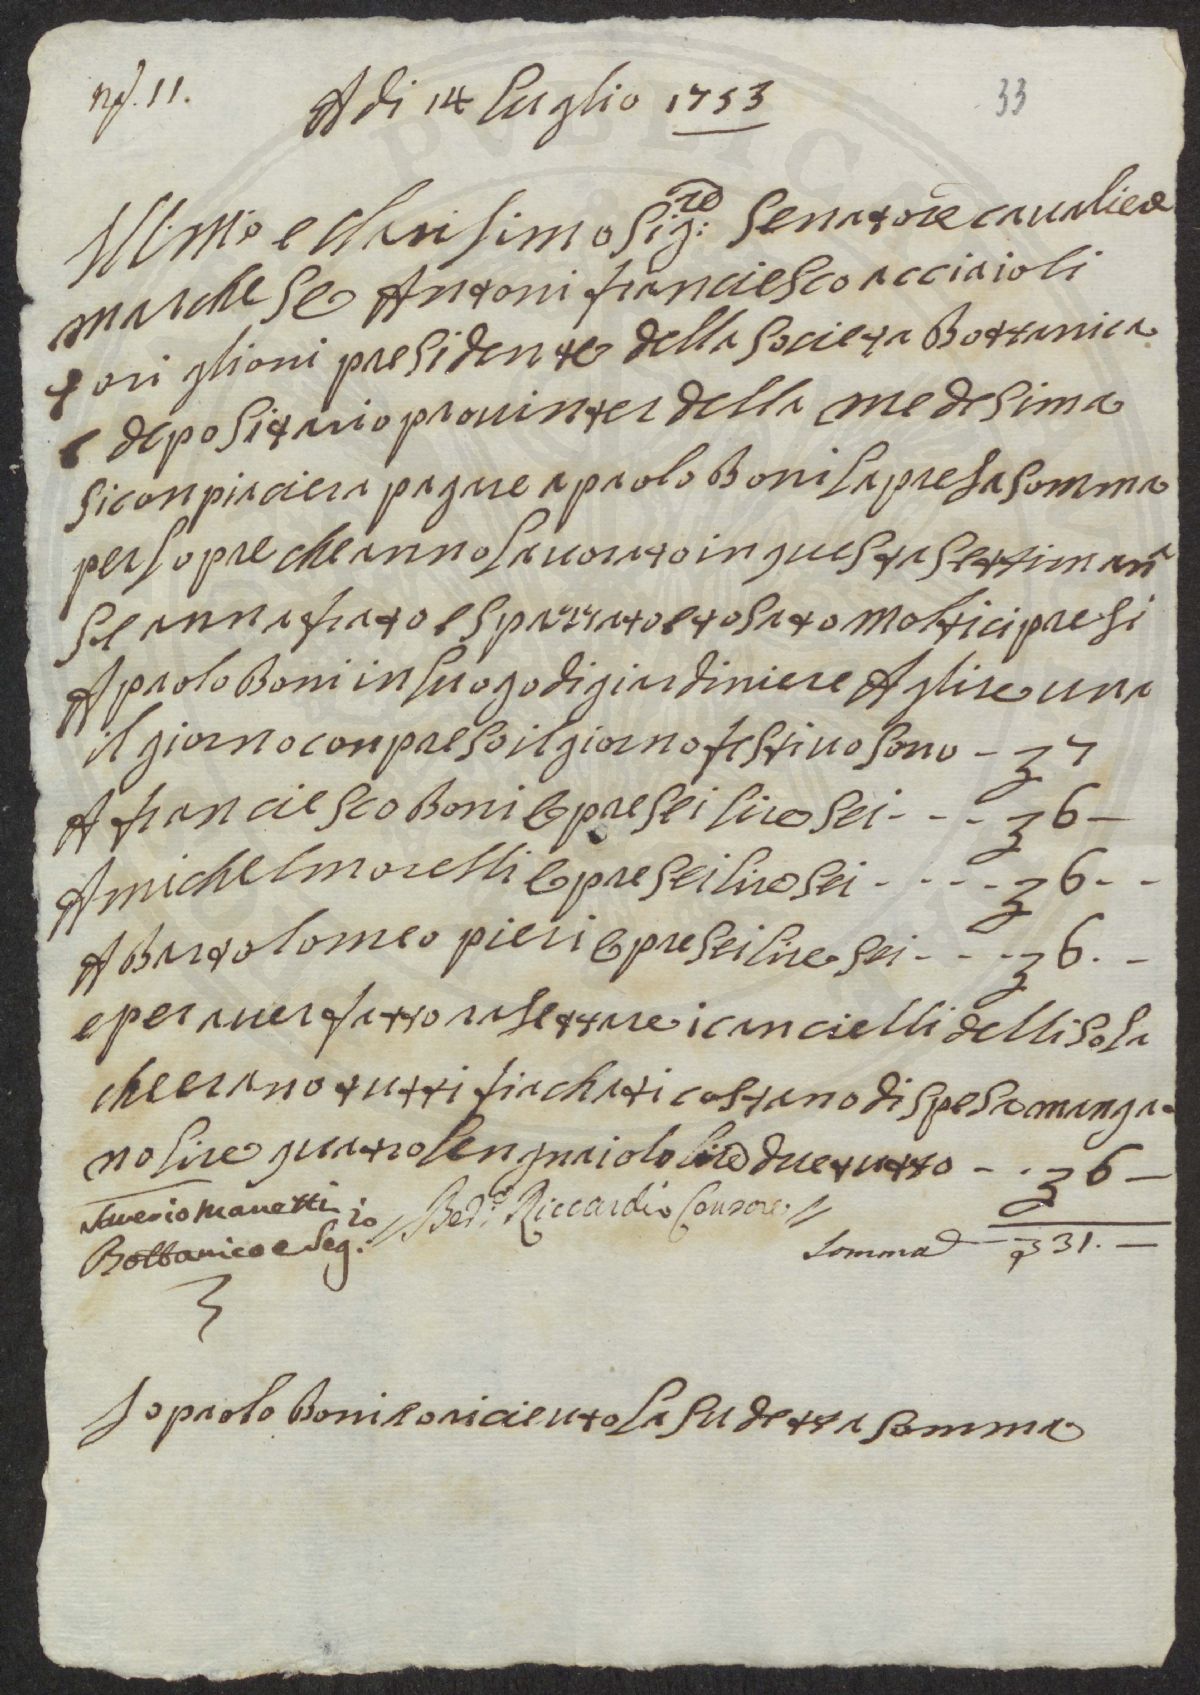 n.° 11. A di 14 luglio 1753 33
Ill:mo e clarisimo Sig:re Senatore caualiere
marchese Antoni franciesco acciaioli
toriglioni presidente della Societa Bottanica
e depositario prouinter della medesima
si conpiaciera pagare a paolo Boni la presa somma
per lopre che anno lauorato in questa settimana
Se annafiato e spazzato e tosato molti cipresi
A paolo Boni in luogo di giardiniere A lire una
il giorno conpreso il giorno festiuo sono - 7
A franciesco Boni opre sei lire sei - - - 6 -
A michel morelli opre sei lire sei - - - - 6 - -
A Bartolomeo pieri opre sei lire sei - - - 6. -
e per auer fatto rasettare i cancielli dellisola
che erano tutti fiachati costano di spesa mangra
no lire quatro lengnaiolo lire due tutto - . 6 -
Saverio Manetti
Bottanico e Seg:rio // Bed.° Riccardi Consore //
Somma 31. -
Io paolo Boni o riceuto la sudetta somma